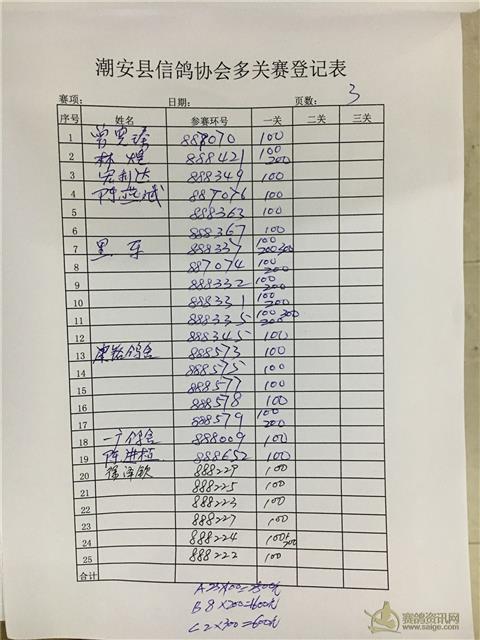 潮安县信鸽协会多关赛登记表
赛项: 日期: 页数: 3
序号 姓名 参赛环号 一关 二关 三关
1 888070 100
2 林煌 888421 100 200
3 宏利达 888349 100
4 887076 100
5 888363 100
6 888367 100
7 里车 888337 100 200 300
8 887074 100 200
9 888332 100 200
10 888331 100 200
11 888335 100 300 200
12 888345 100
13 888573 100
14 888575 100
15 888577 100
16 888578 100
17 888579 100 200
18 888009 100
19 888652 100
20 888229 100
21 888225 100
22 888223 100
23 888227 100
24 888224 100+ 200
25 888222 100
合计
A 25×100=2500元
B 8×200=1600元
C 2×300=600元
赛鸽资讯网
www.saige.com